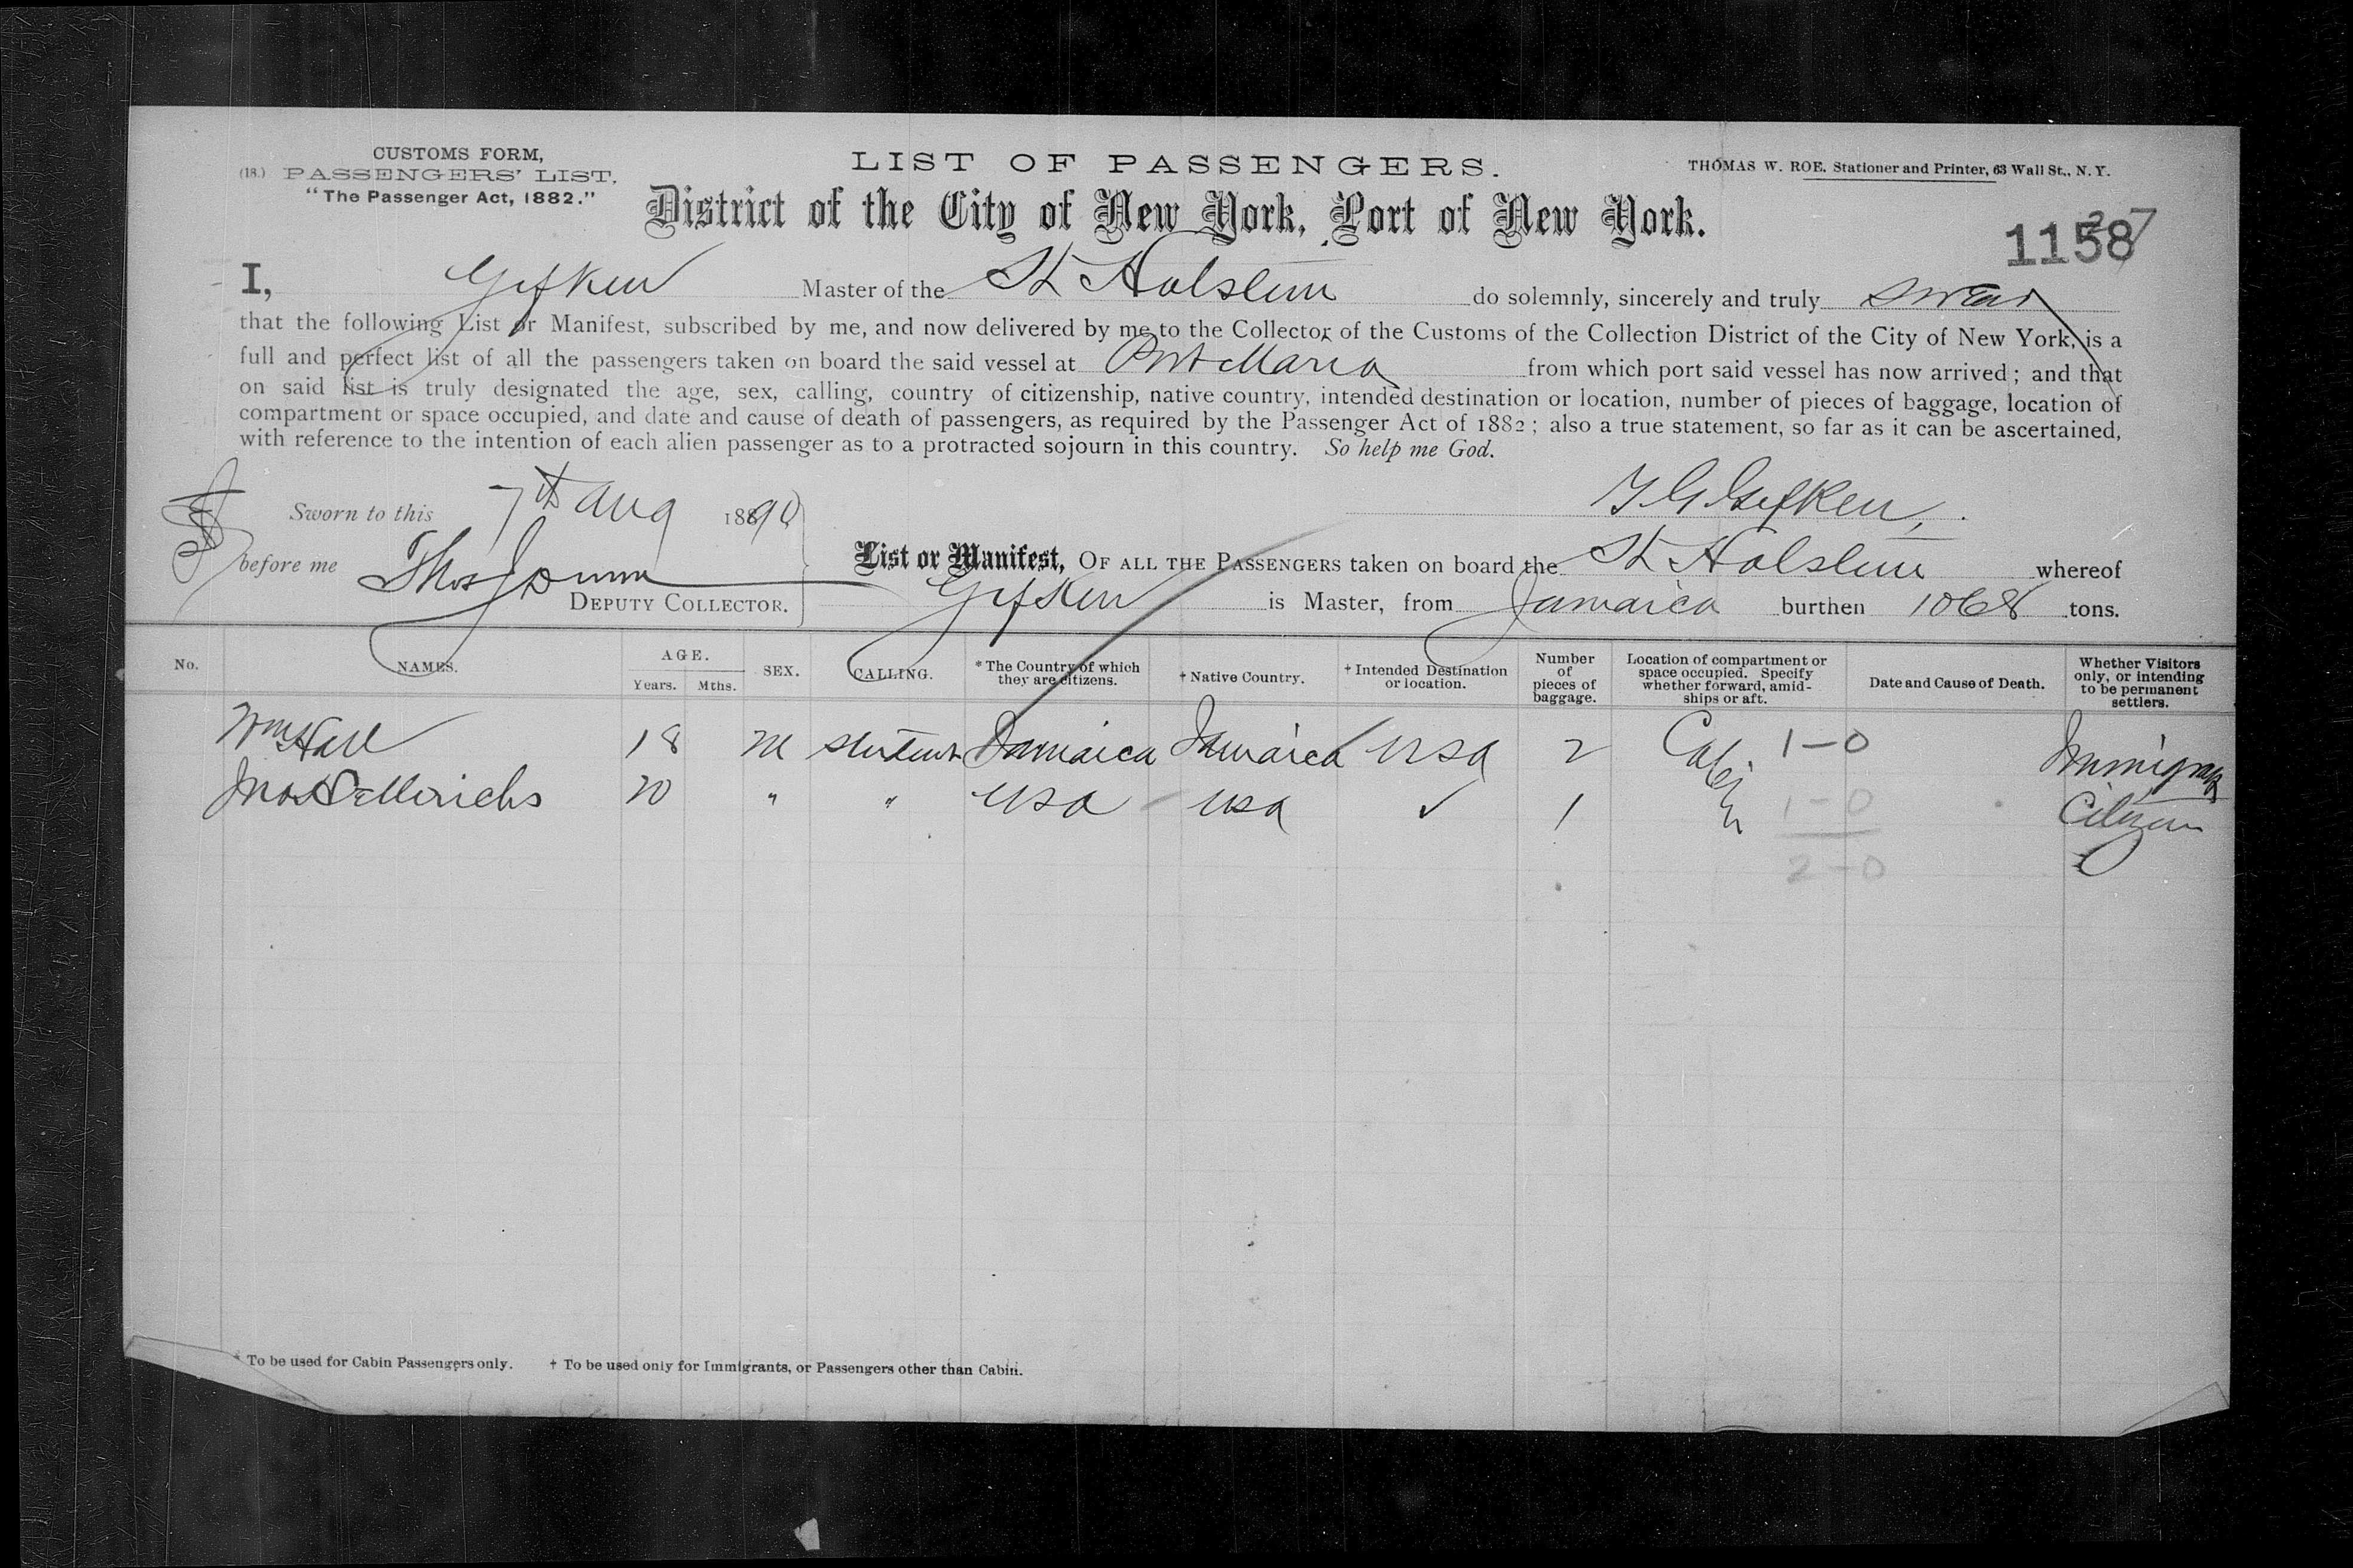 CUSTOMS FORM,
(18.) PASSENGERS' LIST,
"The Passenger Act, 1882."
LIST OF PASSENGERS.
THOMAS W. ROE, Stationer and Printer, 63 Wall St., N. Y.
District of the City of New York, Port of New York.
1158
I, Gefken Master of the St Holstein do solemnly, sincerely and truly swear
that the following List or Manifest, subscribed by me, and now delivered by me to the Collector of the Customs of the Collection District of the City of New York, is a
full and perfect list of all the passengers taken on board the said vessel at Port Maria from which port said vessel has now arrived; and that
on said list is truly designated the age, sex, calling, country of citizenship, native country, intended destination or location, number of pieces of baggage, location of
compartment or space occupied, and date and cause of death of passengers, as required by the Passenger Act of 1882; also a true statement, so far as it can be ascertained,
with reference to the intention of each alien passenger as to a protracted sojourn in this country. So help me God.
Sworn to this 7th Aug 1890 Gefken
before me Thos Dunn
DEPUTY COLLECTOR.
List or Manifest, OF ALL THE PASSENGERS taken on board the St Holstein whereof
Gefken is Master, from Jamaica burthen 1068 tons.
No. NAMES. AGE. Years. Mths. SEX. CALLING. * The Country of which they are citizens. † Native Country. † Intended Destination or location. Number of pieces of baggage. Location of compartment or space occupied. Specify whether forward, amidships or aft. Date and Cause of Death. Whether Visitors only, or intending to be permanent settlers.
Wm Hall 18 M Student Jamaica Jamaica USA 2 Cabin 1-0 Immigrant
20 " " USA USA ✓ 1 1-0 Citizen
2-0
* To be used for Cabin Passengers only. † To be used only for Immigrants, or Passengers other than Cabin.